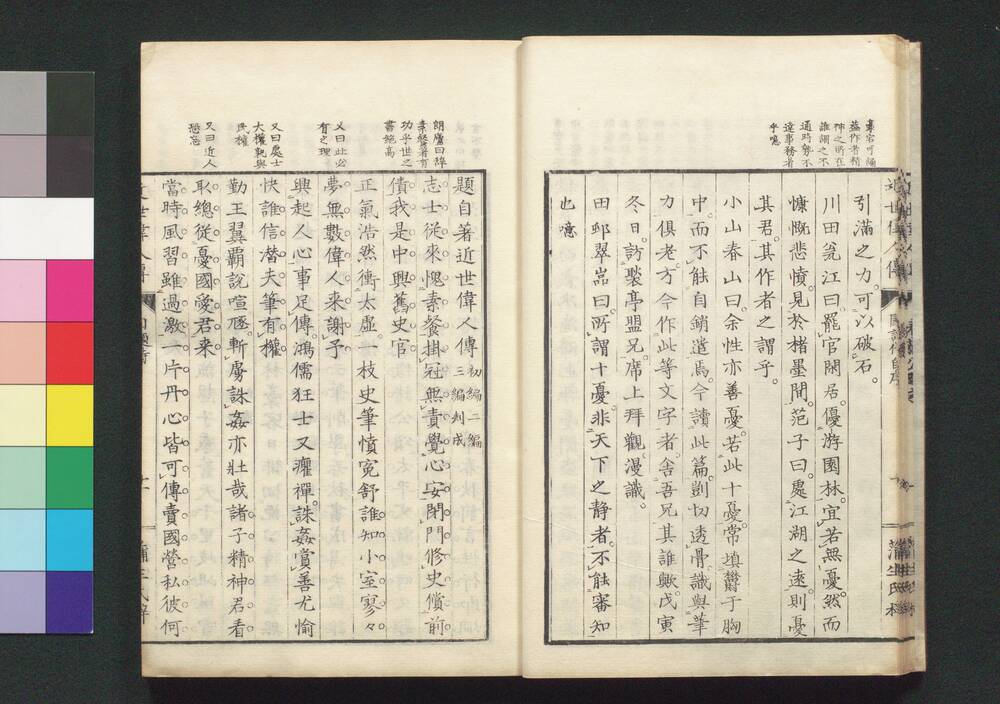 引滿之力。可以破石。
川田瓮江曰。罷官閑居。優游園林。宜若無憂。然而
慷慨悲憤。見於楮墨間。范子曰。處江湖之遠則憂
其君。其作者之謂乎。
小山春山曰。余性亦善憂。若此十憂。常塡鬱于胸
中。而不能自銷遣焉。今讀此篇。剴切透骨。識與筆
力俱老。方今作此等文字者。舍吾兄其誰歟。戊寅
冬日。訪褧亭盟兄。席上拜觀。漫識。
田邨翠嵓曰。所謂十憂。非天下之靜者。不能審知
也噫
題自著近世偉人傳初編二編三編刻成
志士從來愧素餐掛冠無責覺心安閉門修史償前
債我是中興舊史官
正氣浩然衝太虛一枝史筆憤寃舒誰知小室寥々
夢無數偉人來謝予
興起人心事足傳鴻儒狂士又癯禪誅姦賞善尤愉
快誰信潛夫筆有權
勤王翼霸說喧豗斬虜誅姦亦壯哉諸子精神君看
取總從憂國愛君來
當時風習雖過激一片丹心皆可傳賣國營私彼何
通時勢不
達事務者
乎噫
又曰此必
有之理
又曰處士
大權孰與
民權
又曰近人
恐忘